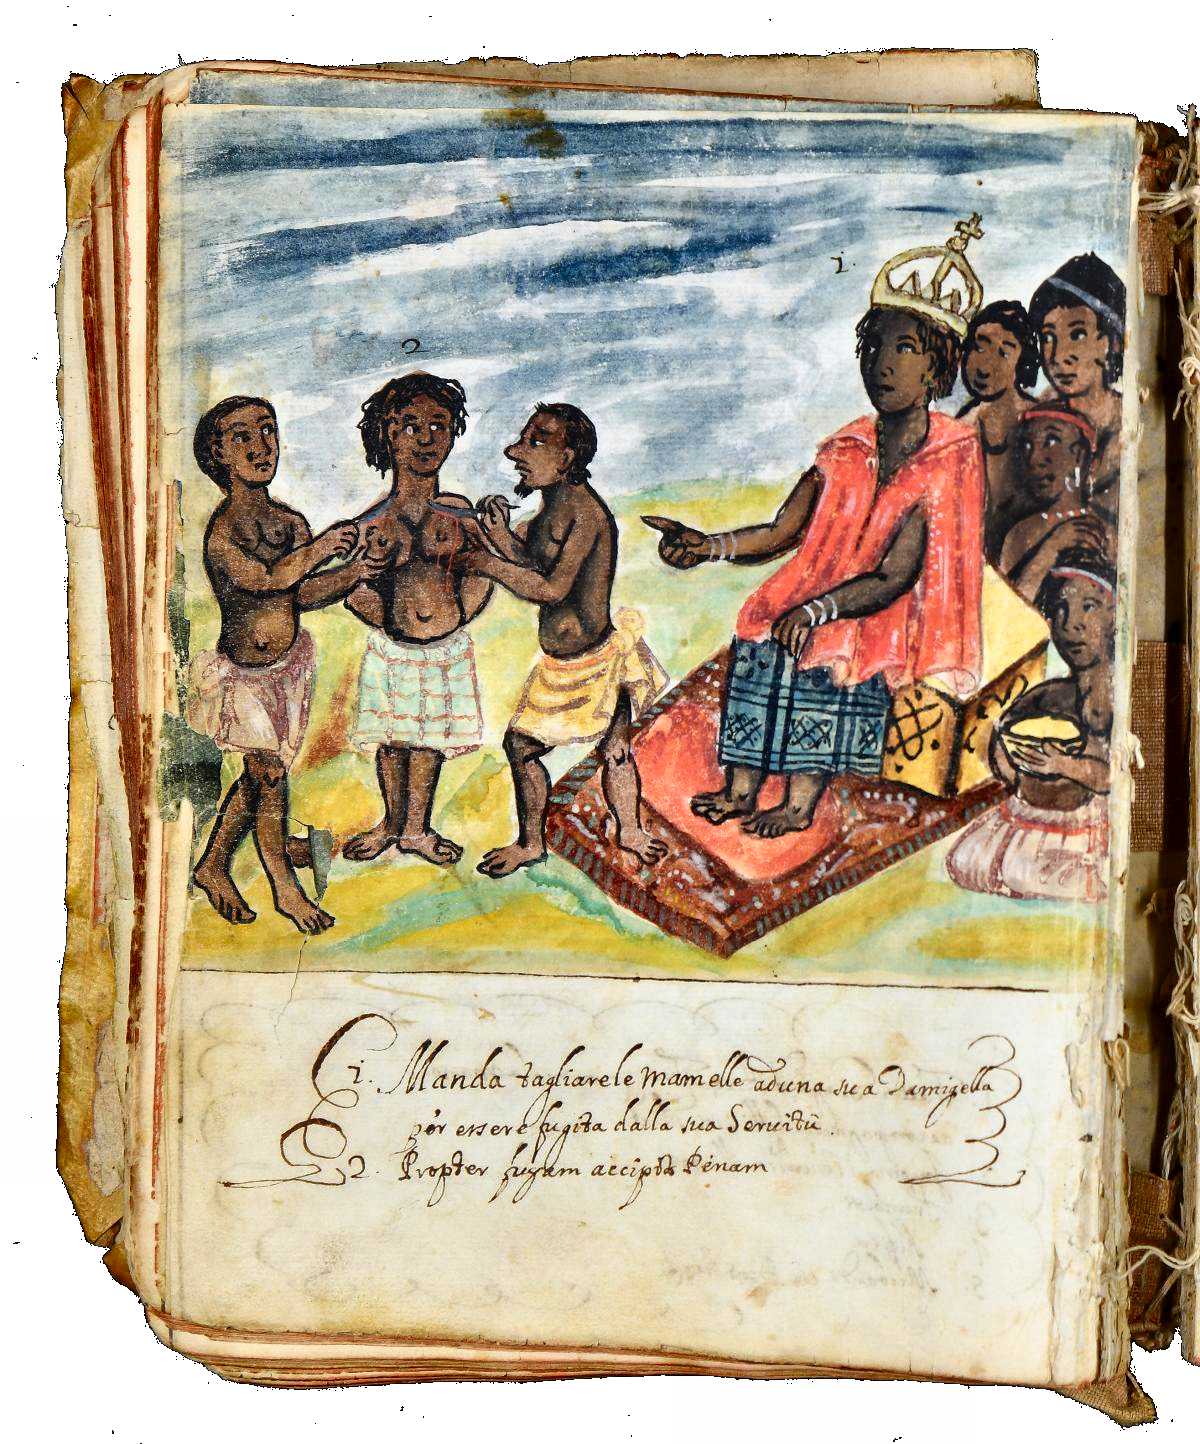 2
1.
1. Manda tagliare le Mamelle ad una sua Damizella
per essere fugita dalla sua Seruitù.
2. Propter fugam accipit Penam